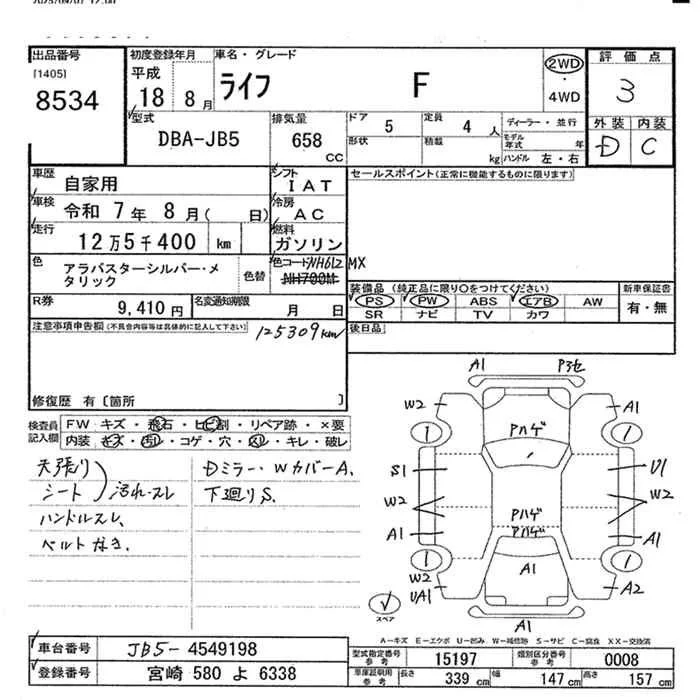 出品番号
[1405]
8534
初度登録年月
平成
18 8月
車名・グレード
ライフ F
2WD
・
4WD
評価点
3
外装 内装
D C
型式
DBA-JB5
排気量
658
CC
ドア
5
定員
4 人
形状
積載
kg
ディーラー・並行
モデル
年式 年
ハンドル 左・右
車歴
自家用
車検
令和 7年 8月( 日)
走行
12万5千400 km
色
アラバスターシルバー・メ
タリック
色替
シフト
IAT
冷房
AC
燃料
ガソリン
色コード NH612MX
NH700M
R券
9,410円
名変通知期限
月 日
セールスポイント(正常に機能するものに限ります)
装備品 (純正品に限り○をつけてください)
PS PW ABS エアB AW
SR ナビ TV カワ
新車保証書
有・無
後日品
注意事項申告欄(不具合内容等は具体的に記入して下さい)
125309km
修復歴 有〔箇所 〕
検査員
記入欄
FW キズ・飛石・ヒビ割・リペア跡・×要
内装 キズ・汚れ・コゲ・穴・スレ・キレ・破レ
天張り
シート
汚れ・スレ
ハンドルスレ、
ベルトなき、
Dミラー・WカバーA、
下廻りS、
A1
W2
A1
1
1
Pハゲ
S1
U1
W2
W2
Pハゲ
Pハゲ
A1
A1
1
1
W2
UA1
A1
A2
スペア
A1
A-キズ E-エクボ U-凹み W-補修跡 S-サビ C-腐食 XX-交換済
車台番号
JB5-4549198
登録番号
宮崎 580 よ 6338
型式指定番号
参考
15197
類別区分番号
参考
0008
車庫証明用
参考
長さ
339 cm
幅
147 cm
高さ
157 cm